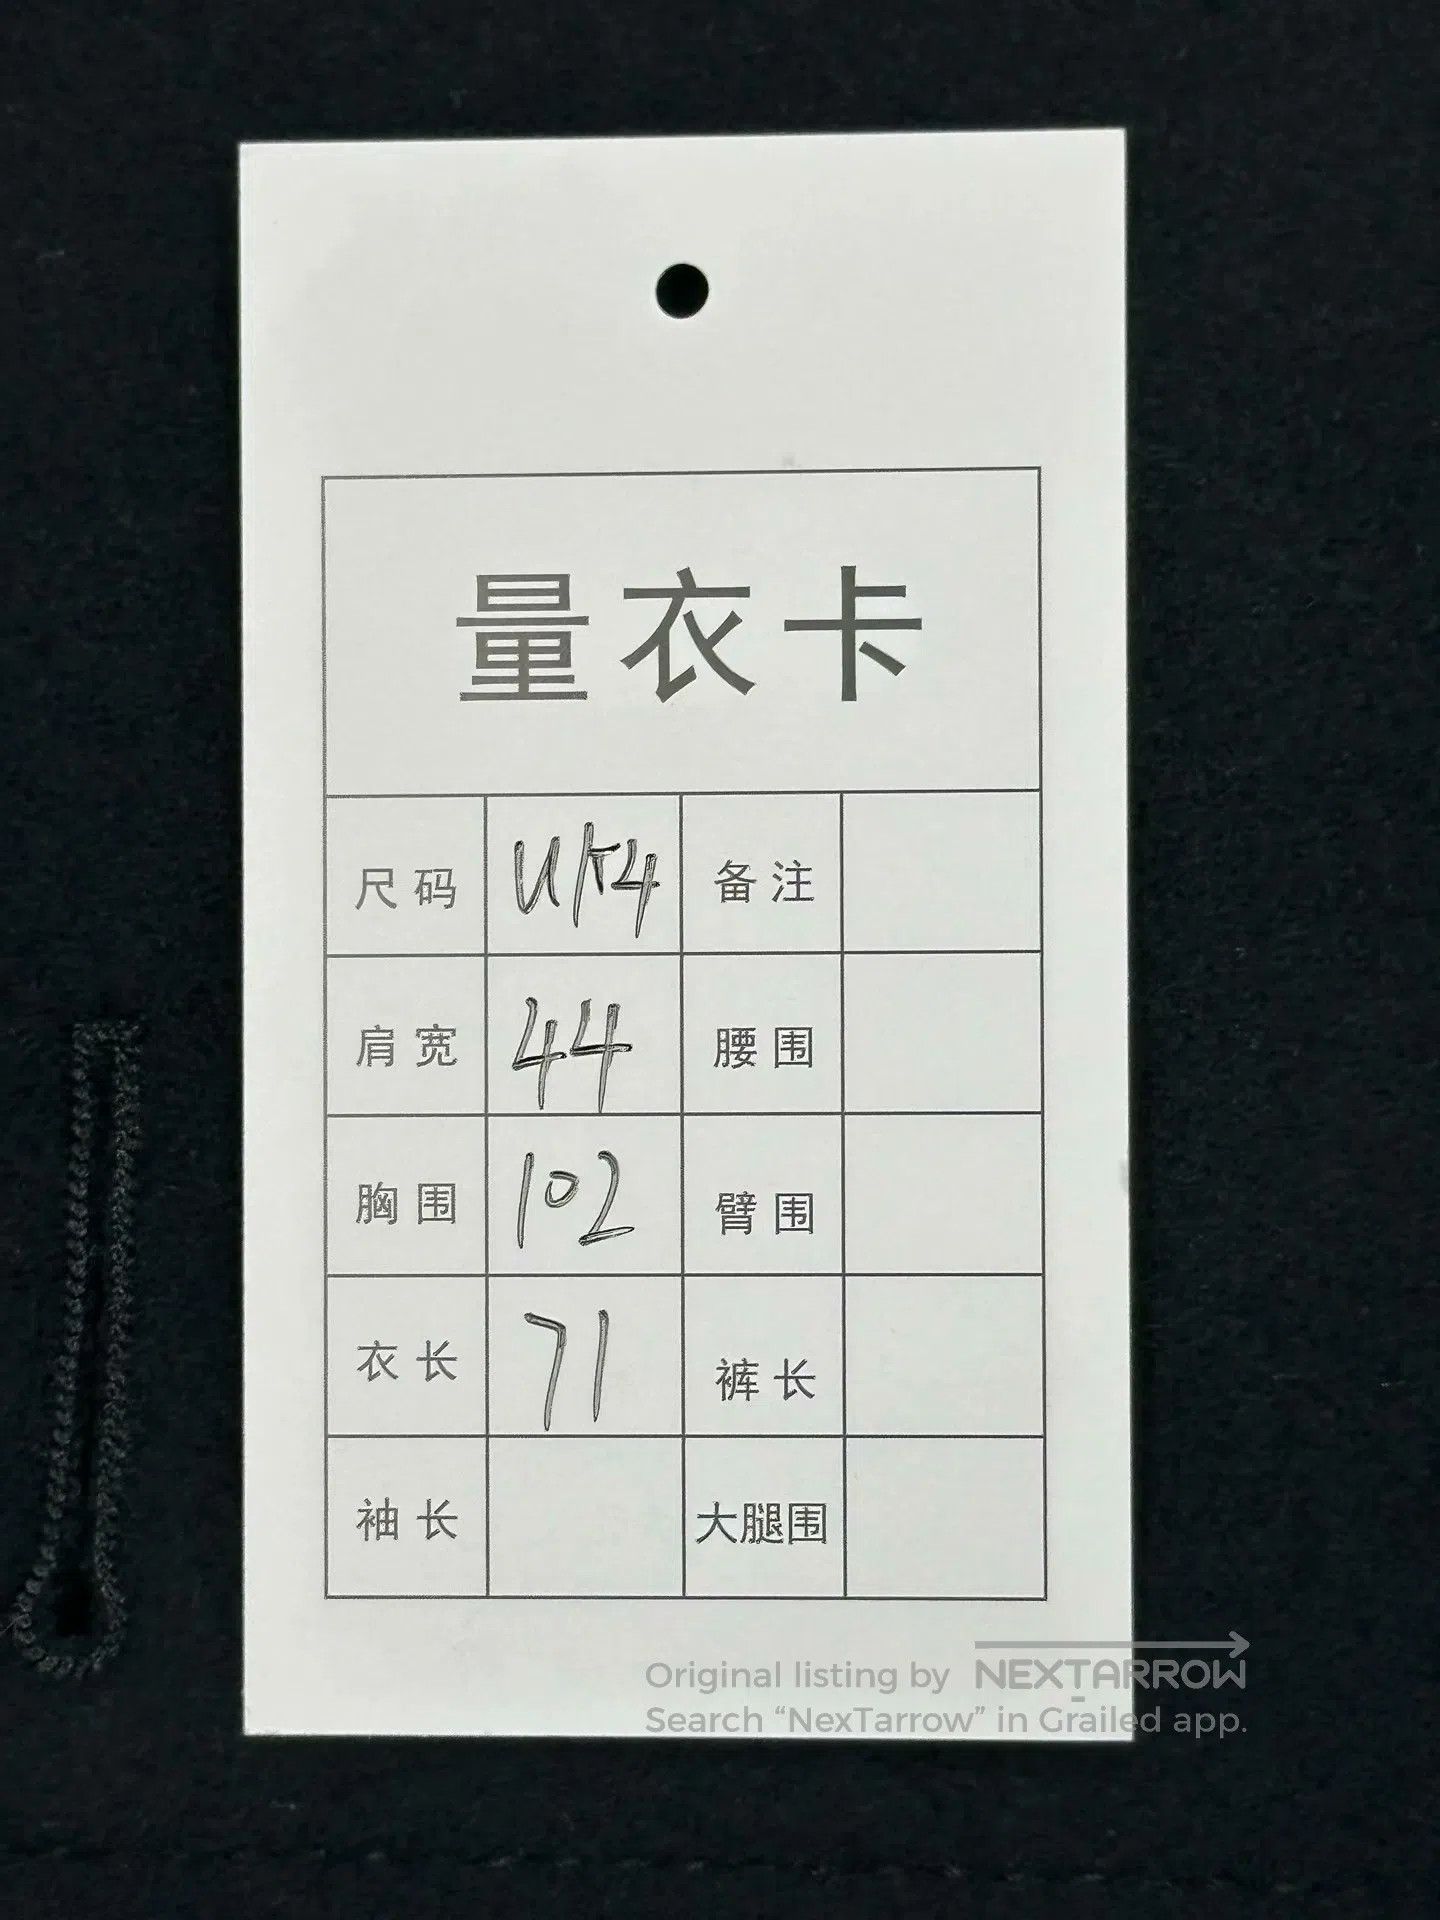 量衣卡
尺码 UK4 备注
肩宽 44 腰围
胸围 102 臂围
衣长 71 裤长
袖长 大腿围
Original listing by NEXTARROW
Search “NexTarrow” in Grailed app.